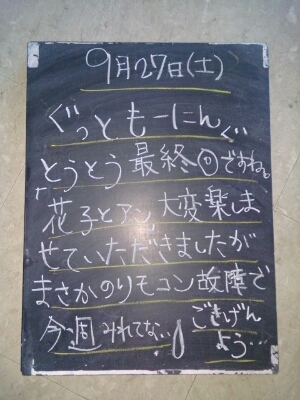 9月27日(土)
ぐっどもーにんぐ
とうとう最終回ですね。
「花子とアン」大変楽しま
せていただきましたが
まさかのリモコン故障で
今週みれてな…!
ごきげん
よう…